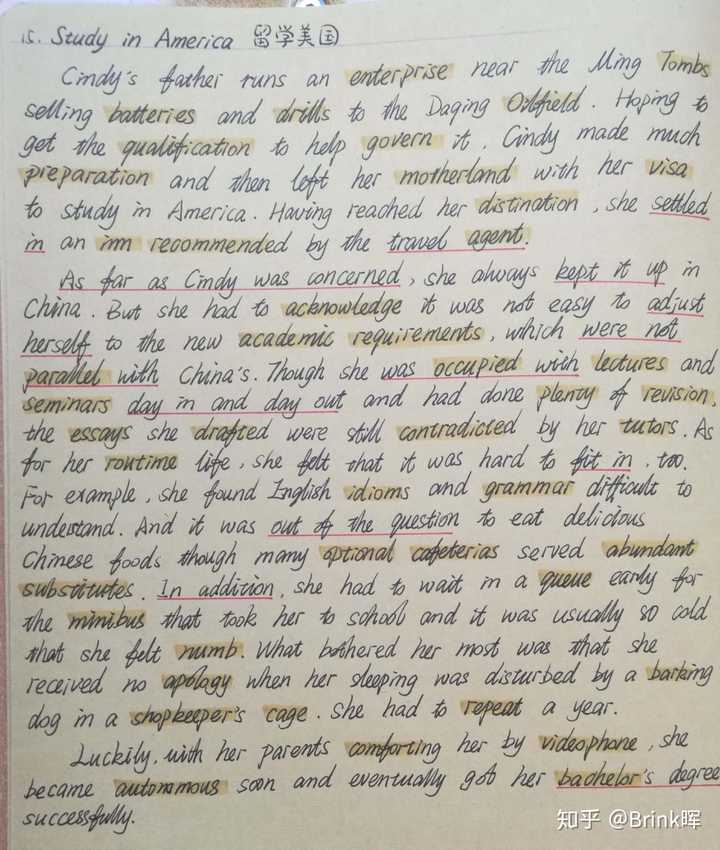 15. Study in America 留学美国
Cindy's father runs an enterprise near the Ming Tombs
selling batteries and drills to the Daqing Oilfield. Hoping to
get the qualification to help govern it, Cindy made much
preparation and then left her motherland with her visa
to study in America. Having reached her distination, she settled
in an inn recommended by the travel agent.
As far as Cindy was concerned, she always kept it up in
China. But she had to acknowledge it was not easy to adjust
herself to the new academic requirements, which were not
parallel with China's. Though she was occupied with lectures and
seminars day in and day out and had done plenty of revision,
the essays she drafted were still contradicted by her tutors. As
for her routime life, she felt that it was hard to fit in, too.
For example, she found English idioms and grammar difficult to
understand. And it was out of the question to eat delicious
Chinese foods though many optional cafeterias served abundant
substitutes. In addition, she had to wait in a queue early for
the minibus that took her to school and it was usually so cold
that she felt numb. What bothered her most was that she
received no apology when her sleeping was disturbed by a barking
dog in a shopkeeper's cage. She had to repeat a year.
Luckily, with her parents comforting her by videophone, she
became autonomous soon and eventually got her bachelor's degree
successfully.
知乎 @Brink晖